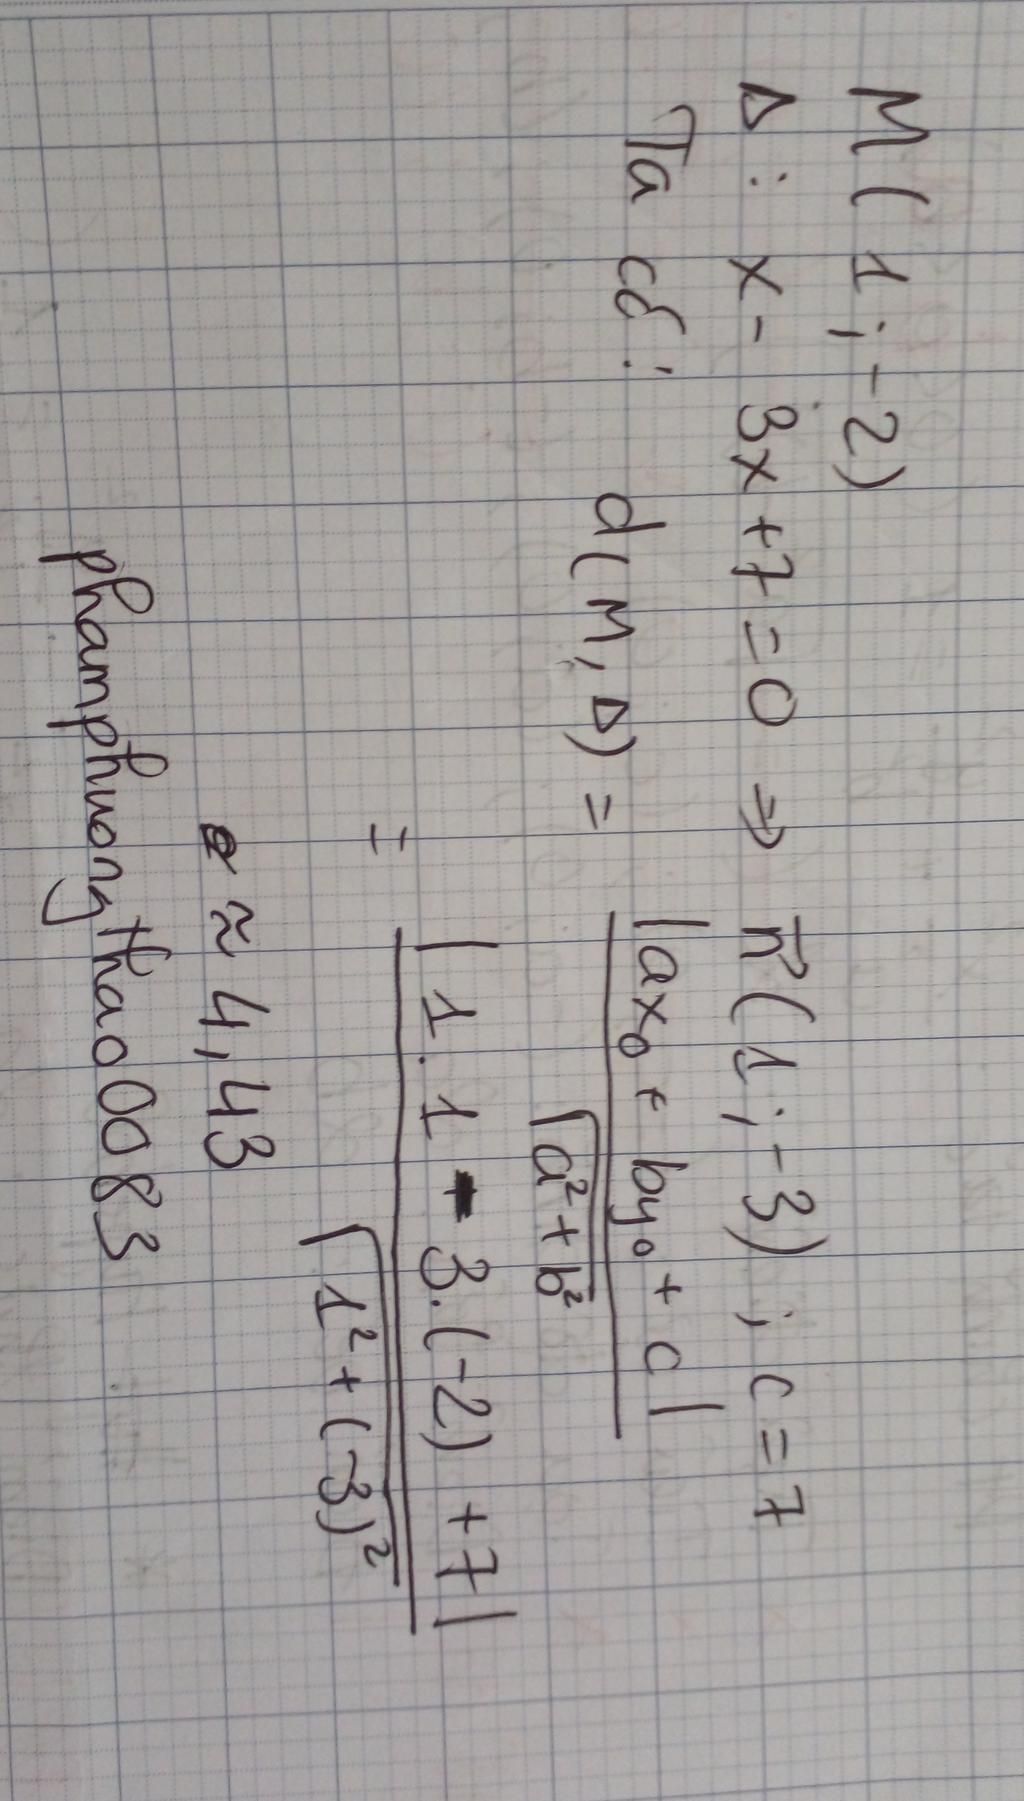 M(1;-2)
Δ: x - 3x + 7 = 0 → n⃗(1;-3); c = 7
Ta có:
d(M,Δ) = |ax₀ + by₀ + c|
√a² + b²
= |1.1 - 3.(-2) + 7|
√1² + (-3)²
≈ 4,43
phamphuongthao0083